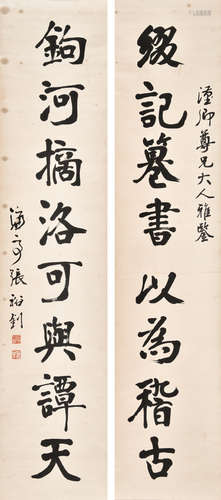 綴記篹書以為稽古
卿尊兄大人雅鑒
鉤河摘洛可與譚天
濂亭張裕釗